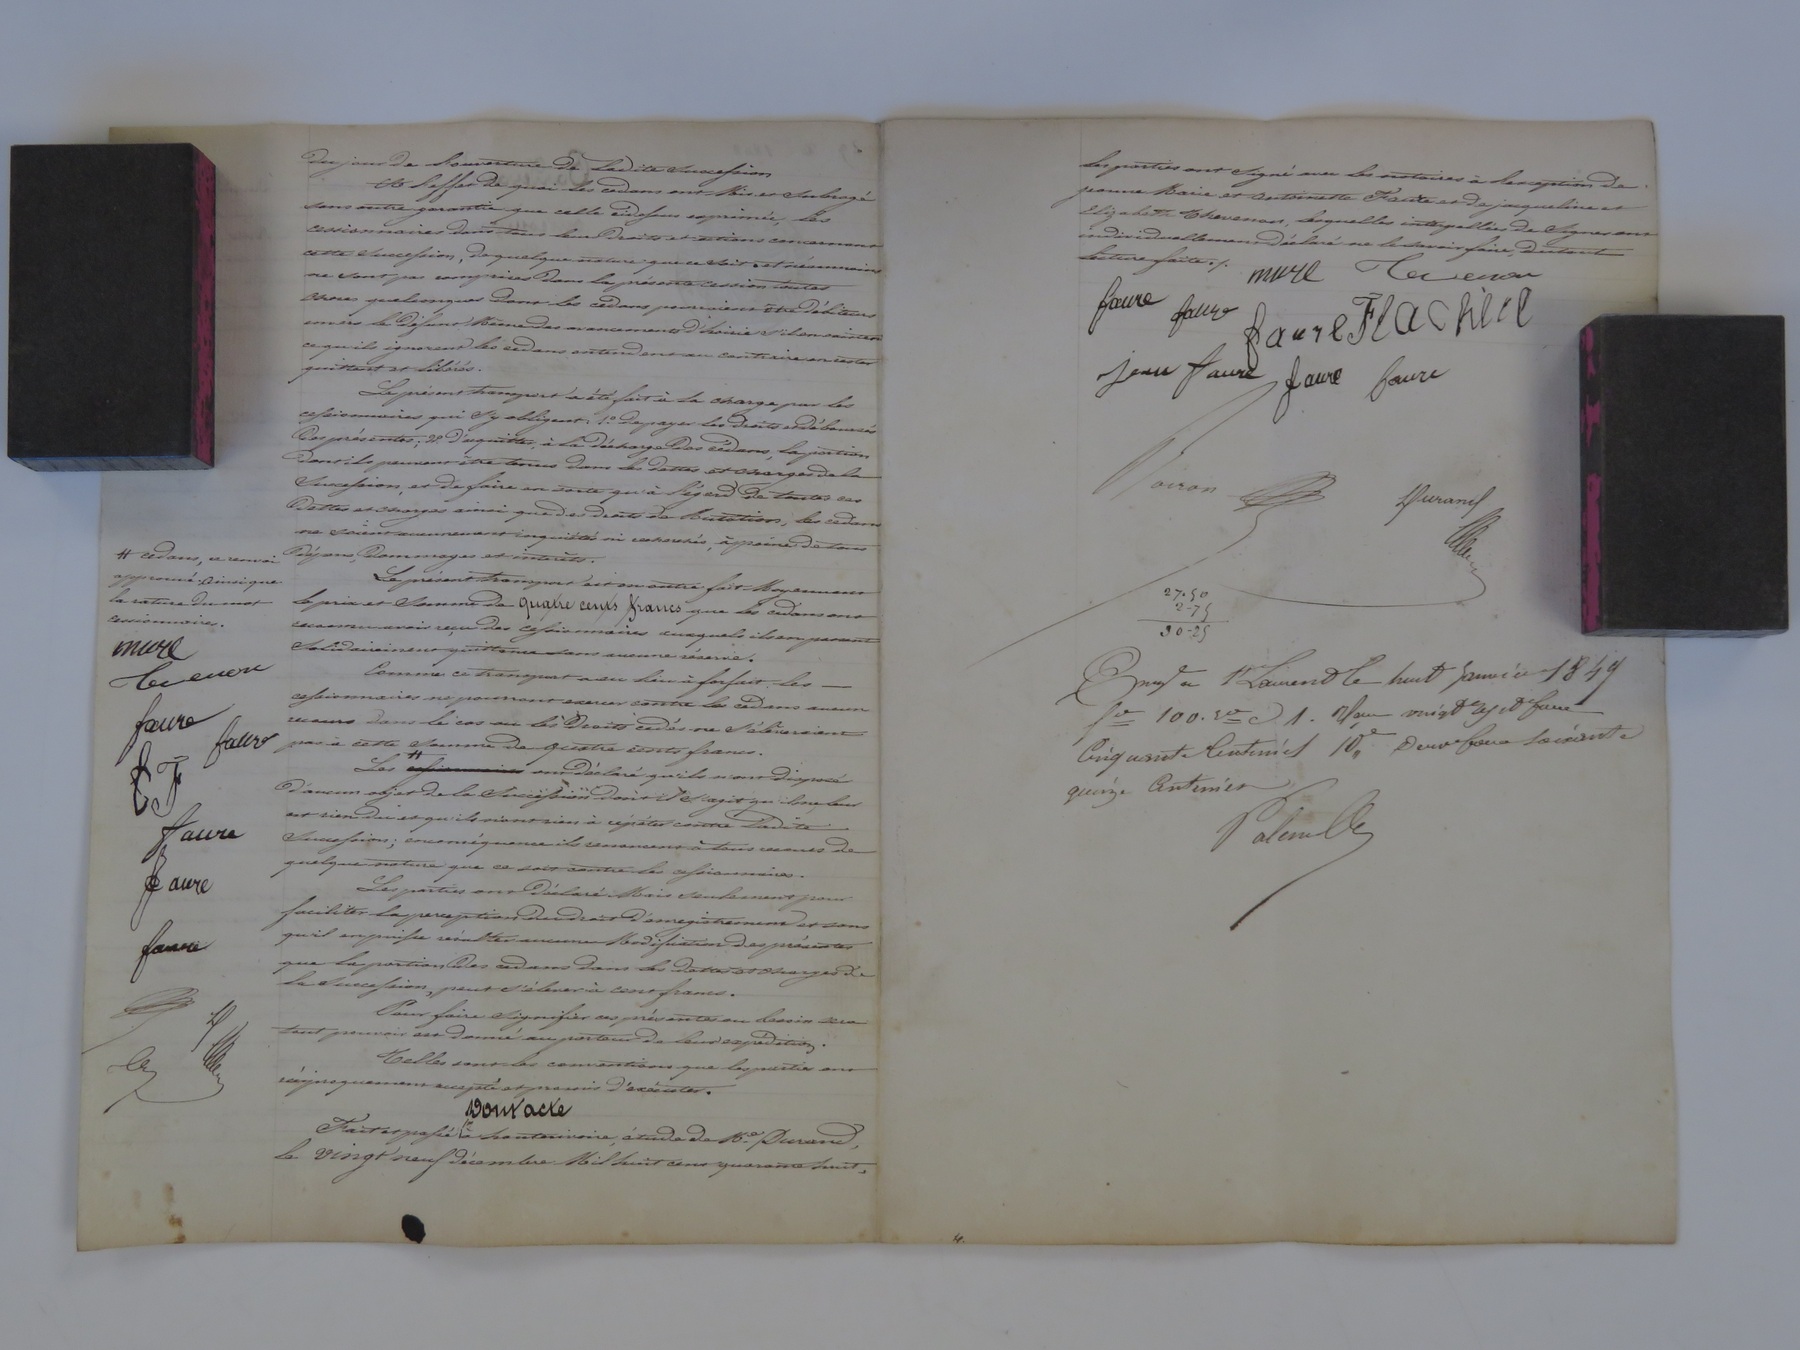 Du jour de l'ouverture de Ladite Succession
A l'effet de quoi les cédans ont Mis et Subrogé
sans autre garantie que celle cidessus exprimée, les
cessionnaires dans tous leurs Droits et actions concernant
cette Succession, de quelque nature que ce soit. et néanmoins
ne sont pas comprises Dans la présente cession toutes
choses quelconques dont les cédans pourraient être débiteurs
envers le Défunt Même des avancements d'hoirie s'il en existe
ce qu'ils ignorent les cédans entendent au contraire en rester
quittent et libérés.
Le présent transport a été fait à la charge par les
cessionnaires qui s'y obligent: 1° de payer les droits et déboursés
Des présentes; 2° d'acquitter, à la décharge Des cédans, la portion
dont ils peuvent être tenus dans les dettes et charges de la
Succession, et de faire en sorte qu'à l'égard De toutes ces
Dettes et charges ainsi que des droits de Mutation, les cédans
ne soient aucunement inquiétés ni recherchés, à peine de tous
Dépens, Dommages et interêts.
Le présent transport est en outre fait Moyennant
le prix et Somme de quatre cents francs que les cédans ont
reconnu avoir reçu des cessionnaires auxquels ils en passent
Solidairement quittance sans aucune réserve.
Comme ce transport a eu lieu à forfait, les
cessionnaires ne pourront exercer contre les cédans aucun
recours dans le cas ou les Droits cédés ne s'élèveraient
pas à cette Somme de quatre cents francs.
Les # cessionnaires ont Déclaré qu'ils n'ont disposé
d'aucun objet de la Succession dont il s'agit qu'il ne leur
est rien dû et qu'ils n'ont rien à répéter contre ladite
Succession; en conséquence ils renoncent à tous recours de
quelque nature que ce soit contre les cessionnaires.
Les parties ont Déclaré Mais seulement pour
faciliter la perception du droit d'enregistrement et sans
qu'il en puisse résulter aucune Modification des présentes
que la portion Des cédans dans les dettes et charges de
la Succession, peut s'élever à cent francs.
Pour faire signifier ces présentes au besoin
tout pouvoir est donné au porteur de leur expédition.
Telles sont les conventions que les parties ont
réciproquement accepté et promis d'exécuter.
Dont acte
Fait et passé à hauterivoire, étude de Me Durand,
le vingt neuf décembre Mil huit cent quarante huit,
# cédans, ce renvoi
approuvé ainsi que
la rature du mot
cessionnaires.
mure
faure
faure
F
faure
faure
faure
D
Les parties ont Signé avec les notaires à l'exception de
jeanne Marie et antoinette Faure et de jacqueline et
Elizabeth thevenon, lesquelles interpellées de Signer ont
individuellement déclaré ne le savoir faire, du tout
lecture faite./.
mure
faure faure faure Flachier
jean faure faure faure
Voiron Durand
27.50
2-75
30-25
Enregt a St Laurent le huit Janvier 1849
fo 100. Vo C 1. Reçu vingt sept francs
Cinquante Centimes 10e deux francs soixante
quinze Centimes
4.